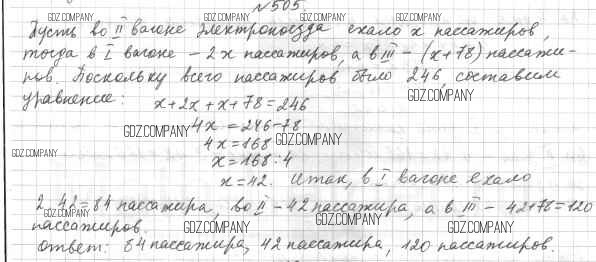 №505.
Пусть во II вагоне электропоезда ехало x пассажиров,
тогда в I вагоне – 2x пассажиров, а в III – (x+78) пассажи-
ров. Поскольку всего пассажиров было 246, составим
уравнение:
x+2x+x+78=246
4x=246-78
4x=168
x=168:4
x=42. Итак, в I вагоне ехало
2·42=84 пассажира, во II – 42 пассажира, а в III – 42+78=120
пассажиров.
Ответ: 84 пассажира, 42 пассажира, 120 пассажиров.
GDZ.COMPANY
GDZ.COMPANY
GDZ.COMPANY
GDZ.COMPANY
GDZ.COMPANY
GDZ.COMPANY
GDZ.COMPANY
GDZ.COMPANY
GDZ.COMPANY
GDZ.COMPANY
GDZ.COMPANY
GDZ.COMPANY